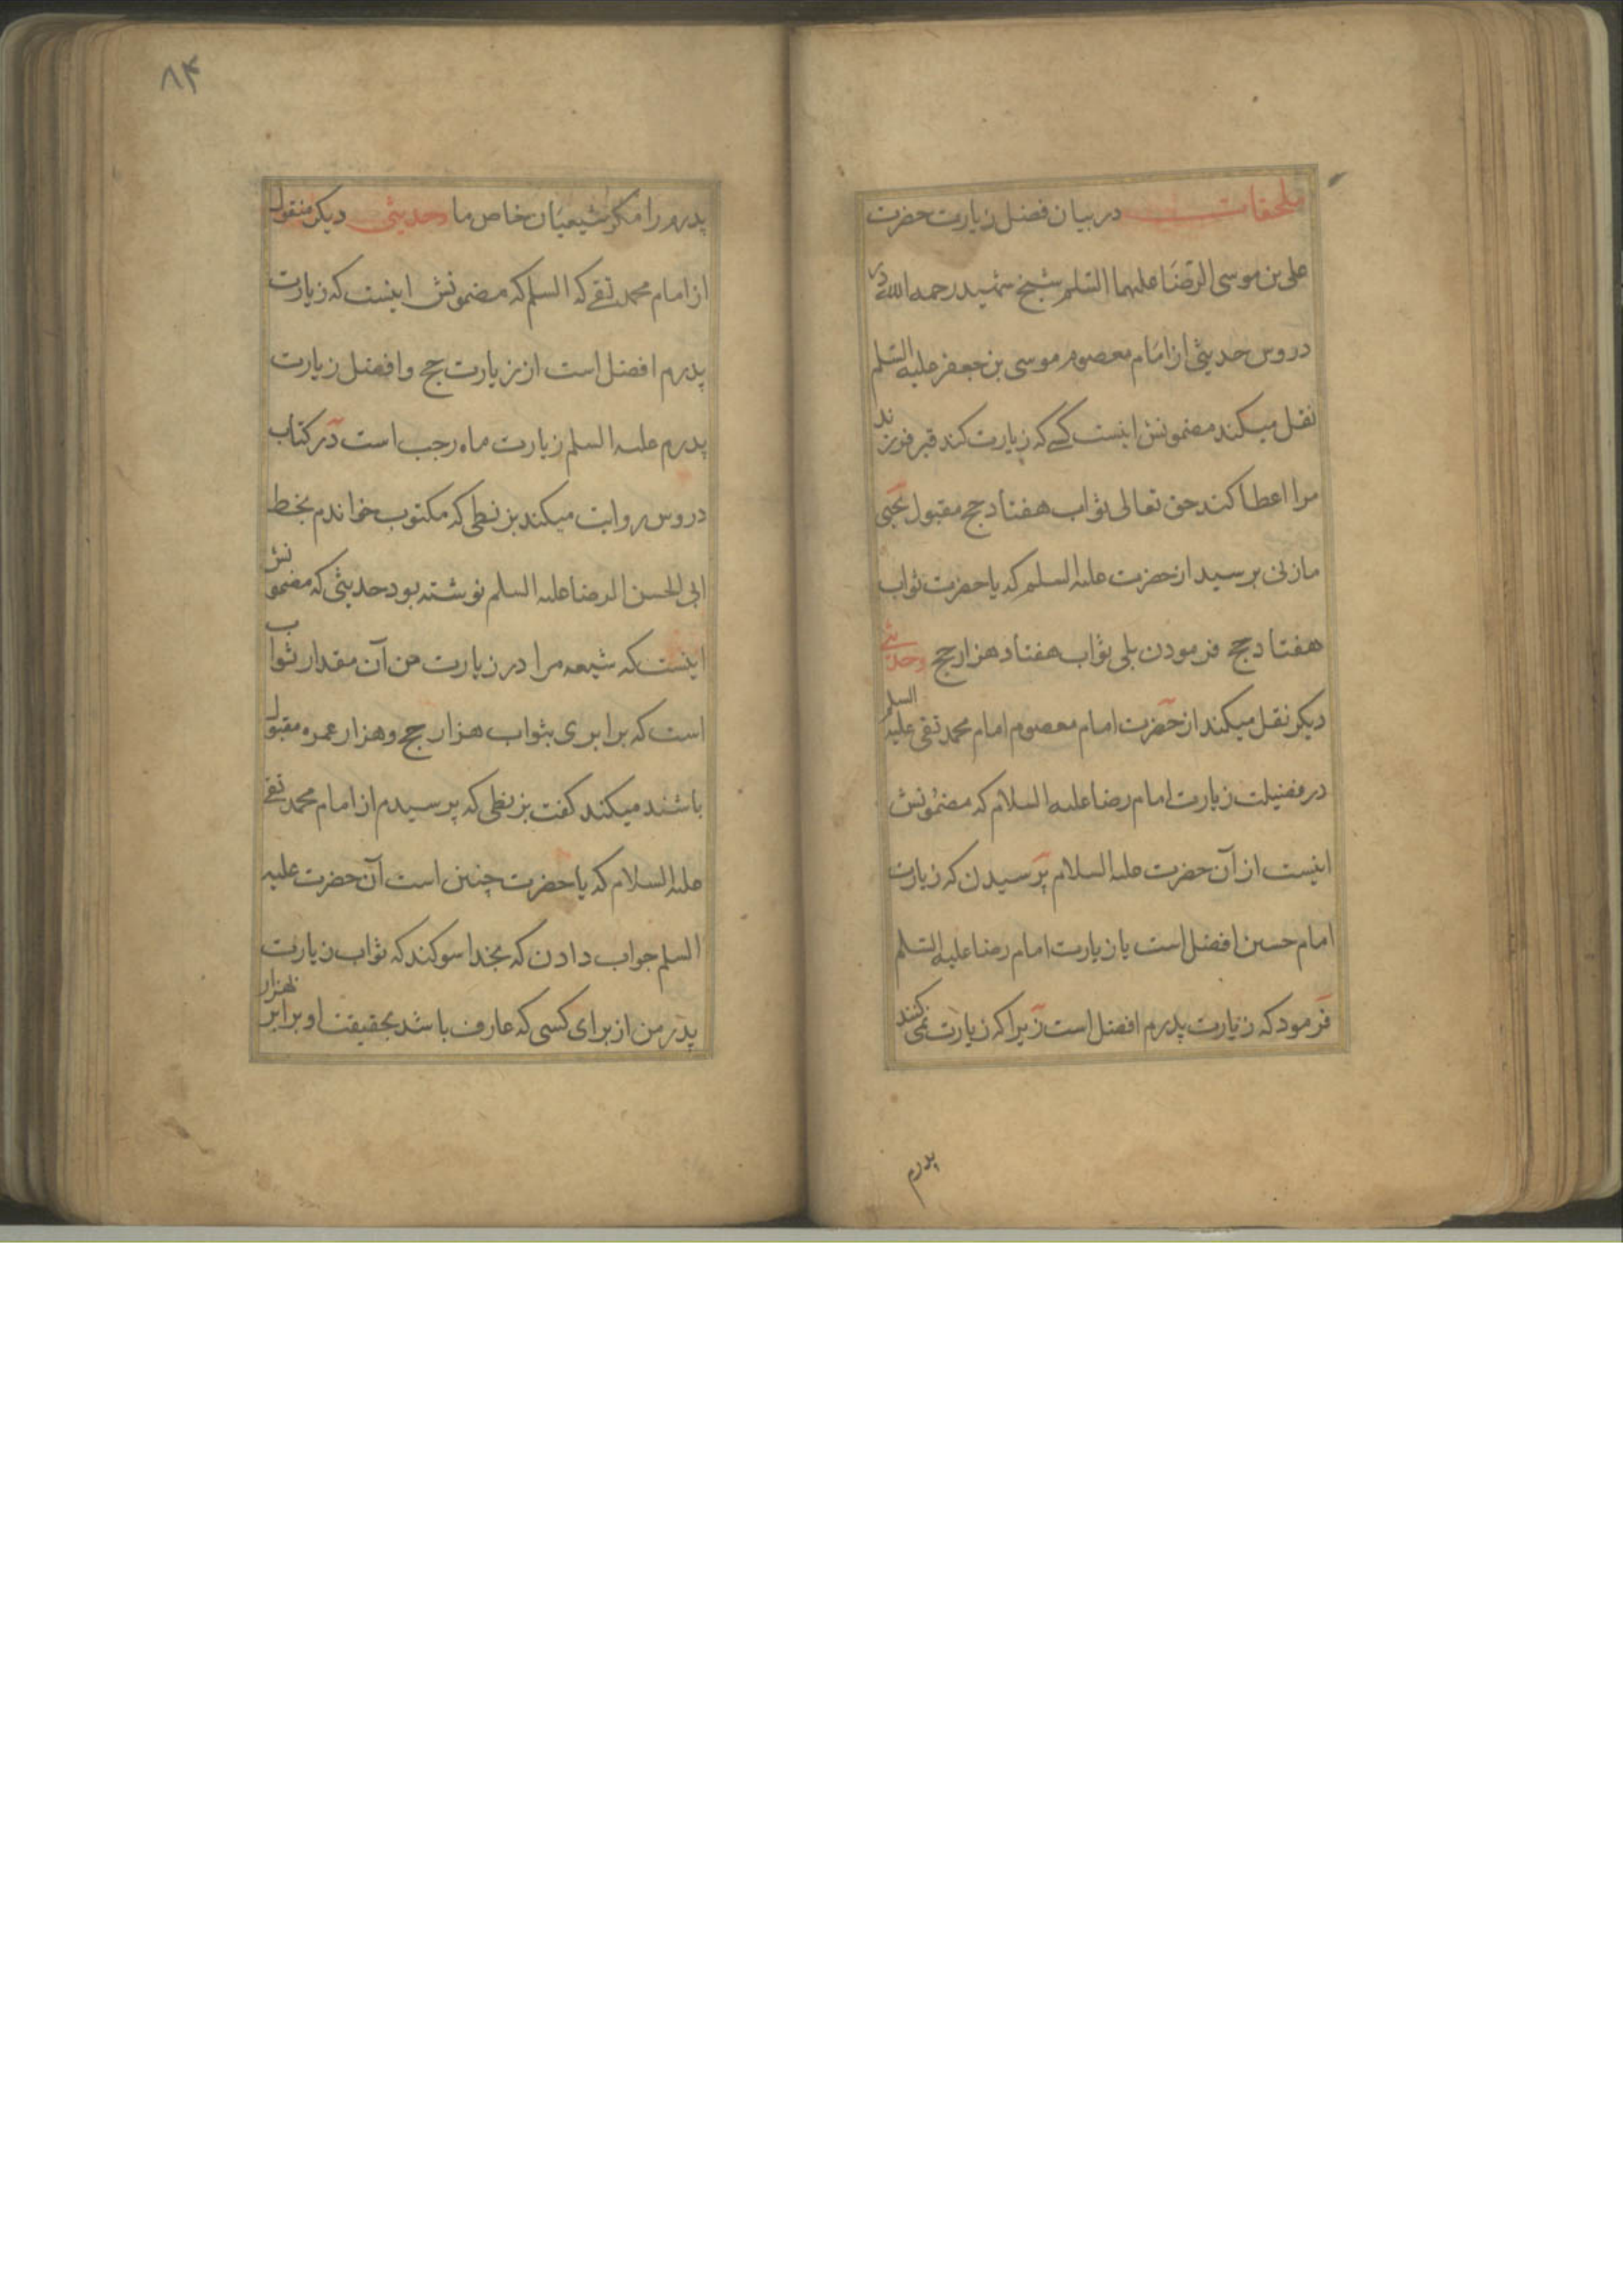 ملحقات در بیان فضل زیارت حضرت
علی بن موسی الرضا علیهما السلم شیخ شهید رحمه الله در
دروس حدیثی از امام معصوم موسی بن جعفر علیه السلم
نقل میکند مضمونش اینست کسے که زیارت کند قبر فرزند
مرا اعطا کند حق تعالی ثواب هفتاد حج مقبول یحیی
مازنی پرسید از حضرت علیه السلم که یا حضرت ثواب
هفتاد حج فرمودن بلی ثواب هفتاد هزار حج وحدیثی
دیکر نقل میکند از حضرت امام معصوم امام محمد تقی علیه السلم
در فضیلت زیارت امام رضا علیه السلام که مضمونش
اینست از آن حضرت علیه السلام پرسیدن که زیارت
امام حسین افضل است یا زیارت امام رضا علیه السلم
فرمود که زیارت پدرم افضل است زیرا که زیارت نمی کنند
پدرم
۸۴
پدرم را مکر شیعیان خاص ما وحدیثی دیکر منقول
از امام محمد تقے که السلم که مضمونش اینست که زیارت
پدرم افضل است از زیارت حج و افضل زیارت
پدرم علیه السلم زیارت ماه رجب است در کتاب
دروس روایت میکند بزنطی که مکتوب خواندم بخط
ابی الحسن الرضا علیه السلم نوشته بود حدیثی که مضمونش
اینست که شیعه مرا در زیارت من آن مقدار ثواب
است که برابری بثواب هزار حج وهزار عمره مقبول
باشند میکند کفت بزنطی که پرسیدم از امام محمد تقے
علیه السلام که یا حضرت چنین است آن حضرت علیه
السلم جواب دادن که بخدا سوکند که ثواب زیارت
پدر من از برای کسی که عارف باشد بحقیقت او برابر بهزار